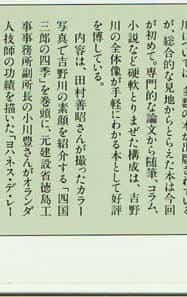 が、総合的な見地からとらえた本は今回
が初めて。専門的な論文から随筆、コラム、
小説など硬軟とりまぜた構成は、吉野
川の全体像が手軽にわかる本として好評
を博している。
内容は、田村善昭さんが撮ったカラー
写真で吉野川の素顔を紹介する「四国
三郎の四季」を巻頭に、元建設省徳島工
事事務所副所長の小川豊さんがオランダ
人技師の功績を描いた「ヨハネス・デ・レー